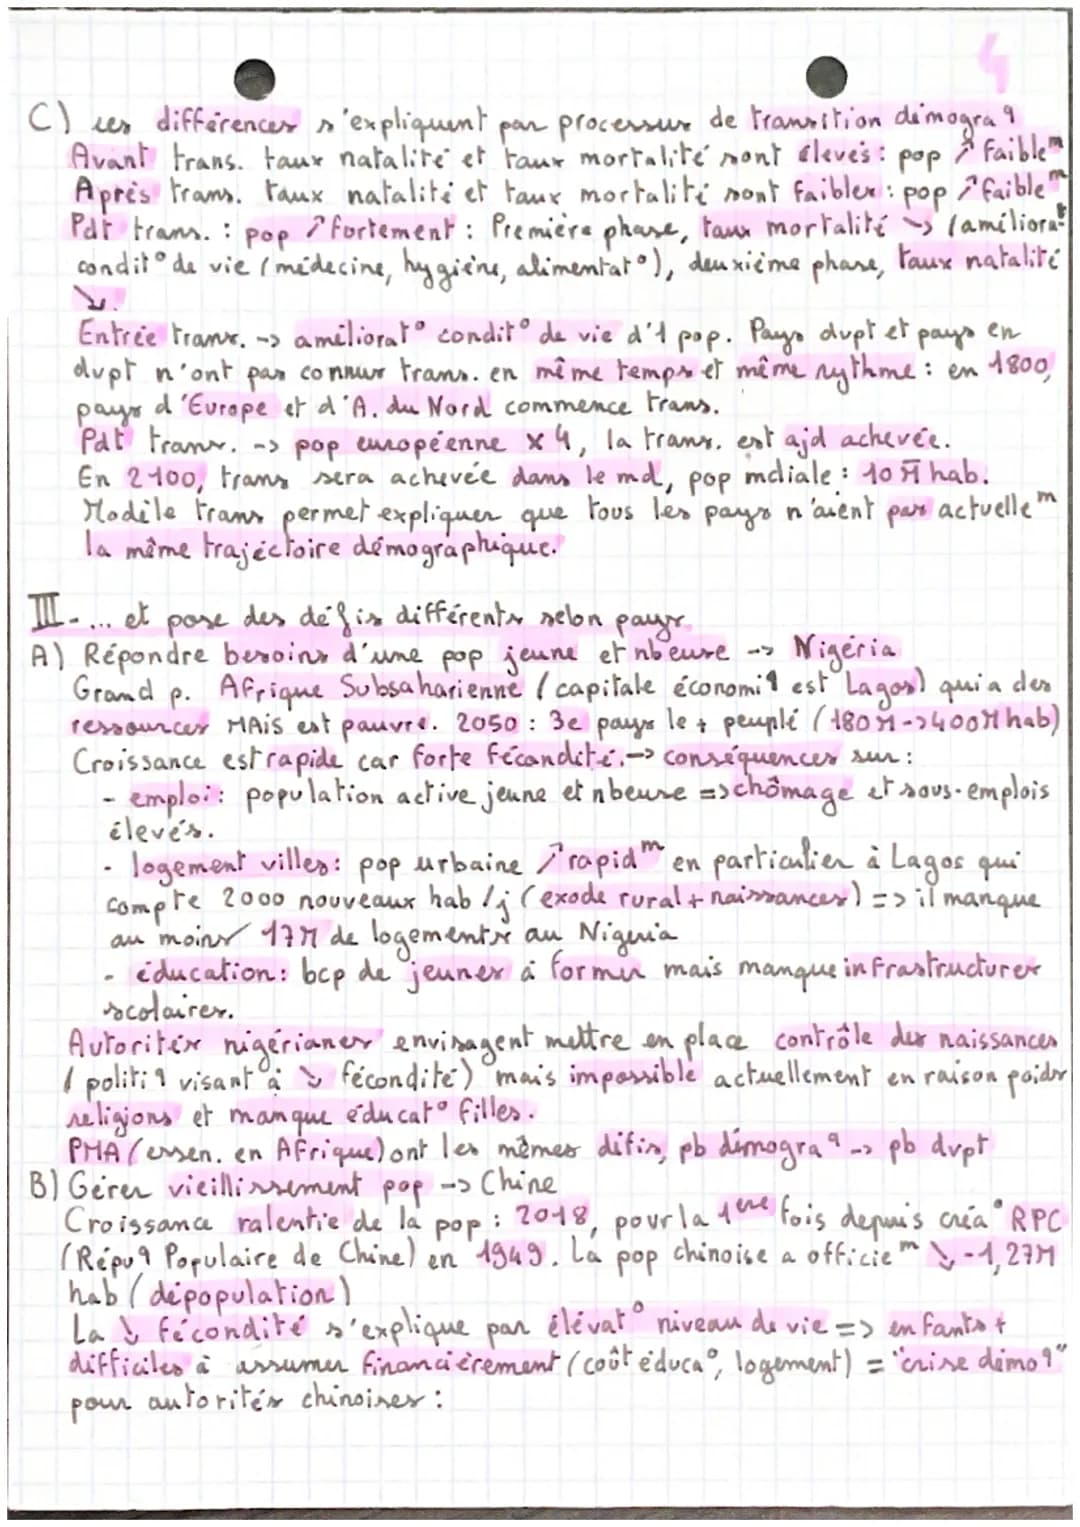 4
C) ces différences s'expliquent par processus de transition démogra q
Avant trans. taux natalité et taux mortalité sont élevés : pop ↗ faible m
Après trans. taux natalité et taux mortalité sont faibles : pop ↗ faible m
Pdt trans. : pop ↗ fortement : Première phase, taux mortalité ↘ (améliorat°
condit° de vie (médecine, hygiène, alimentat°), deuxième phase, taux natalité
↘.
Entrée trans. -> améliorat° condit° de vie d'1 pop. Pays dvpt et pays en
dvpt n'ont pas connus trans. en même temps et même rythme : en 1800,
pays d'Europe et d'A. du Nord commence trans.
Pdt trans. -> pop européenne x 4, la trans. est ajd achevée.
En 2100, trans sera achevée dans le md, pop mdiale : 10 M̄ hab.
Modèle trans permet expliquer que tous les pays n'aient pas actuelle m
la même trajectoire démographique.
III - ... et pose des défis différents selon pays
A) Répondre besoins d'une pop jeune et nbeuse -> Nigéria
Grand p. Afrique Subsaharienne (capitale économiq est Lagos) qui a des
ressources MAIS est pauvre. 2050 : 3e pays le + peuplé (180M -> 400M hab)
Croissance est rapide car forte fécondité. -> conséquences sur :
- emploi : population active jeune et nbeuse => chômage et sous-emplois
élevés.
- logement villes : pop urbaine ↗ rapid m en particulier à Lagos qui
compte 2000 nouveaux hab /j (exode rural + naissances) => il manque
au moins 17M de logements au Nigeria
- éducation : bcp de jeunes à former mais manque infrastructures
scolaires.
Autorités nigérianes envisagent mettre en place contrôle des naissances
(politiq visant à ↘ fécondité) mais impossible actuellement en raison poids
religions et manque éducat° filles.
PMA (essen. en Afrique) ont les mêmes défis, pb démogra q -> pb dvpt
B) Gérer vieillissement pop -> Chine
Croissance ralentie de la pop : 2018, pour la 1ère fois depuis créa° RPC
(Répu q Populaire de Chine) en 1949. La pop chinoise a officie m ↘ -1,27M
hab (dépopulation)
La ↘ fécondité s'explique par élévat° niveau de vie => enfants +
difficiles à assumer financièrement (coût éduca°, logement) = "crise démo q"
pour autorités chinoises :